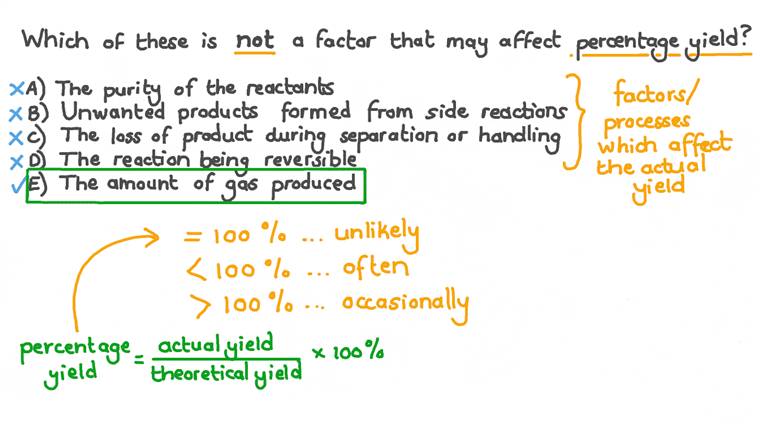 Which of these is not a factor that may affect percentage yield?
× A) The purity of the reactants
× B) Unwanted products formed from side reactions
× C) The loss of product during separation or handling
× D) The reaction being reversible
✓ E) The amount of gas produced
factors/
processes
which affect
the actual
yield
= 100 % ... unlikely
< 100 % ... often
> 100 % ... occasionally
percentage yield = actual yield / theoretical yield × 100 %